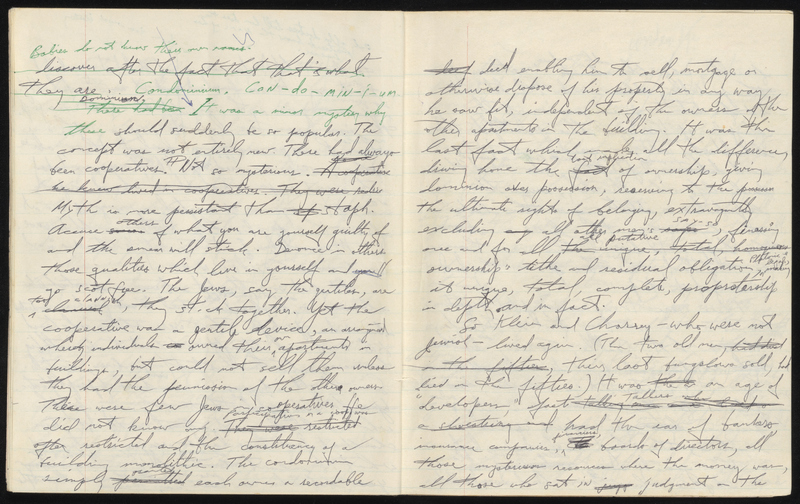 Babies do not know their own names.
discover after the fact that that's what
They are Condominium. Con-do-min-i-um
Dominium.
There had been It was a minor mystery why
these should suddenly be so popular. The
concept was not entirely new. There had always
been cooperatives. Not so mysterious. A cooperative
he knew lived in cooperatives. They were
Myth is more persistent than staph.
others
Accuse of what you are yourself guilty of
and the smear will stick. Denounce in others
those qualities which live in yourself and
go scot free. The Jews, say the gentiles, are
too clannish, they stick together. Yet the
cooperative was a gentile device, an arrangement
whereby individuals owned their apartments in
buildings, but could not sell them unless
they had the permission of the other owners
There were few Jews in cooperatives. He
participation in a
did not know any. They were restricted
often restricted and the constituency of a
building monolithic. The condominium
simply each owner a recordable
deed enabling him to sell, mortgage or
otherwise dispose of his property in any way
he saw fit, independent of the owners of the
other apartments in the building. It was this
last fact which made all the difference,
driving home the of ownership, giving
dominion over possession, reserving to the
the ultimate rights of belonging, extravagantly
excluding all other men's say-so, finessing
putative
once and for all the unique, total, homogeneous
ownership" tithe and residual obligation,
its unique, total, complete, proprietorship
in depth and in fact.
So Klein and Charney - who were not
junior - lived again. (The two old men
in the fifties, their last bungalows sold, had
died in the fifties.) It was an age of
"developers"
a had the ear of bankers
insurance companies, boards of directors, all
those mysterious resources where the money was,
all those who sat in judgment on the